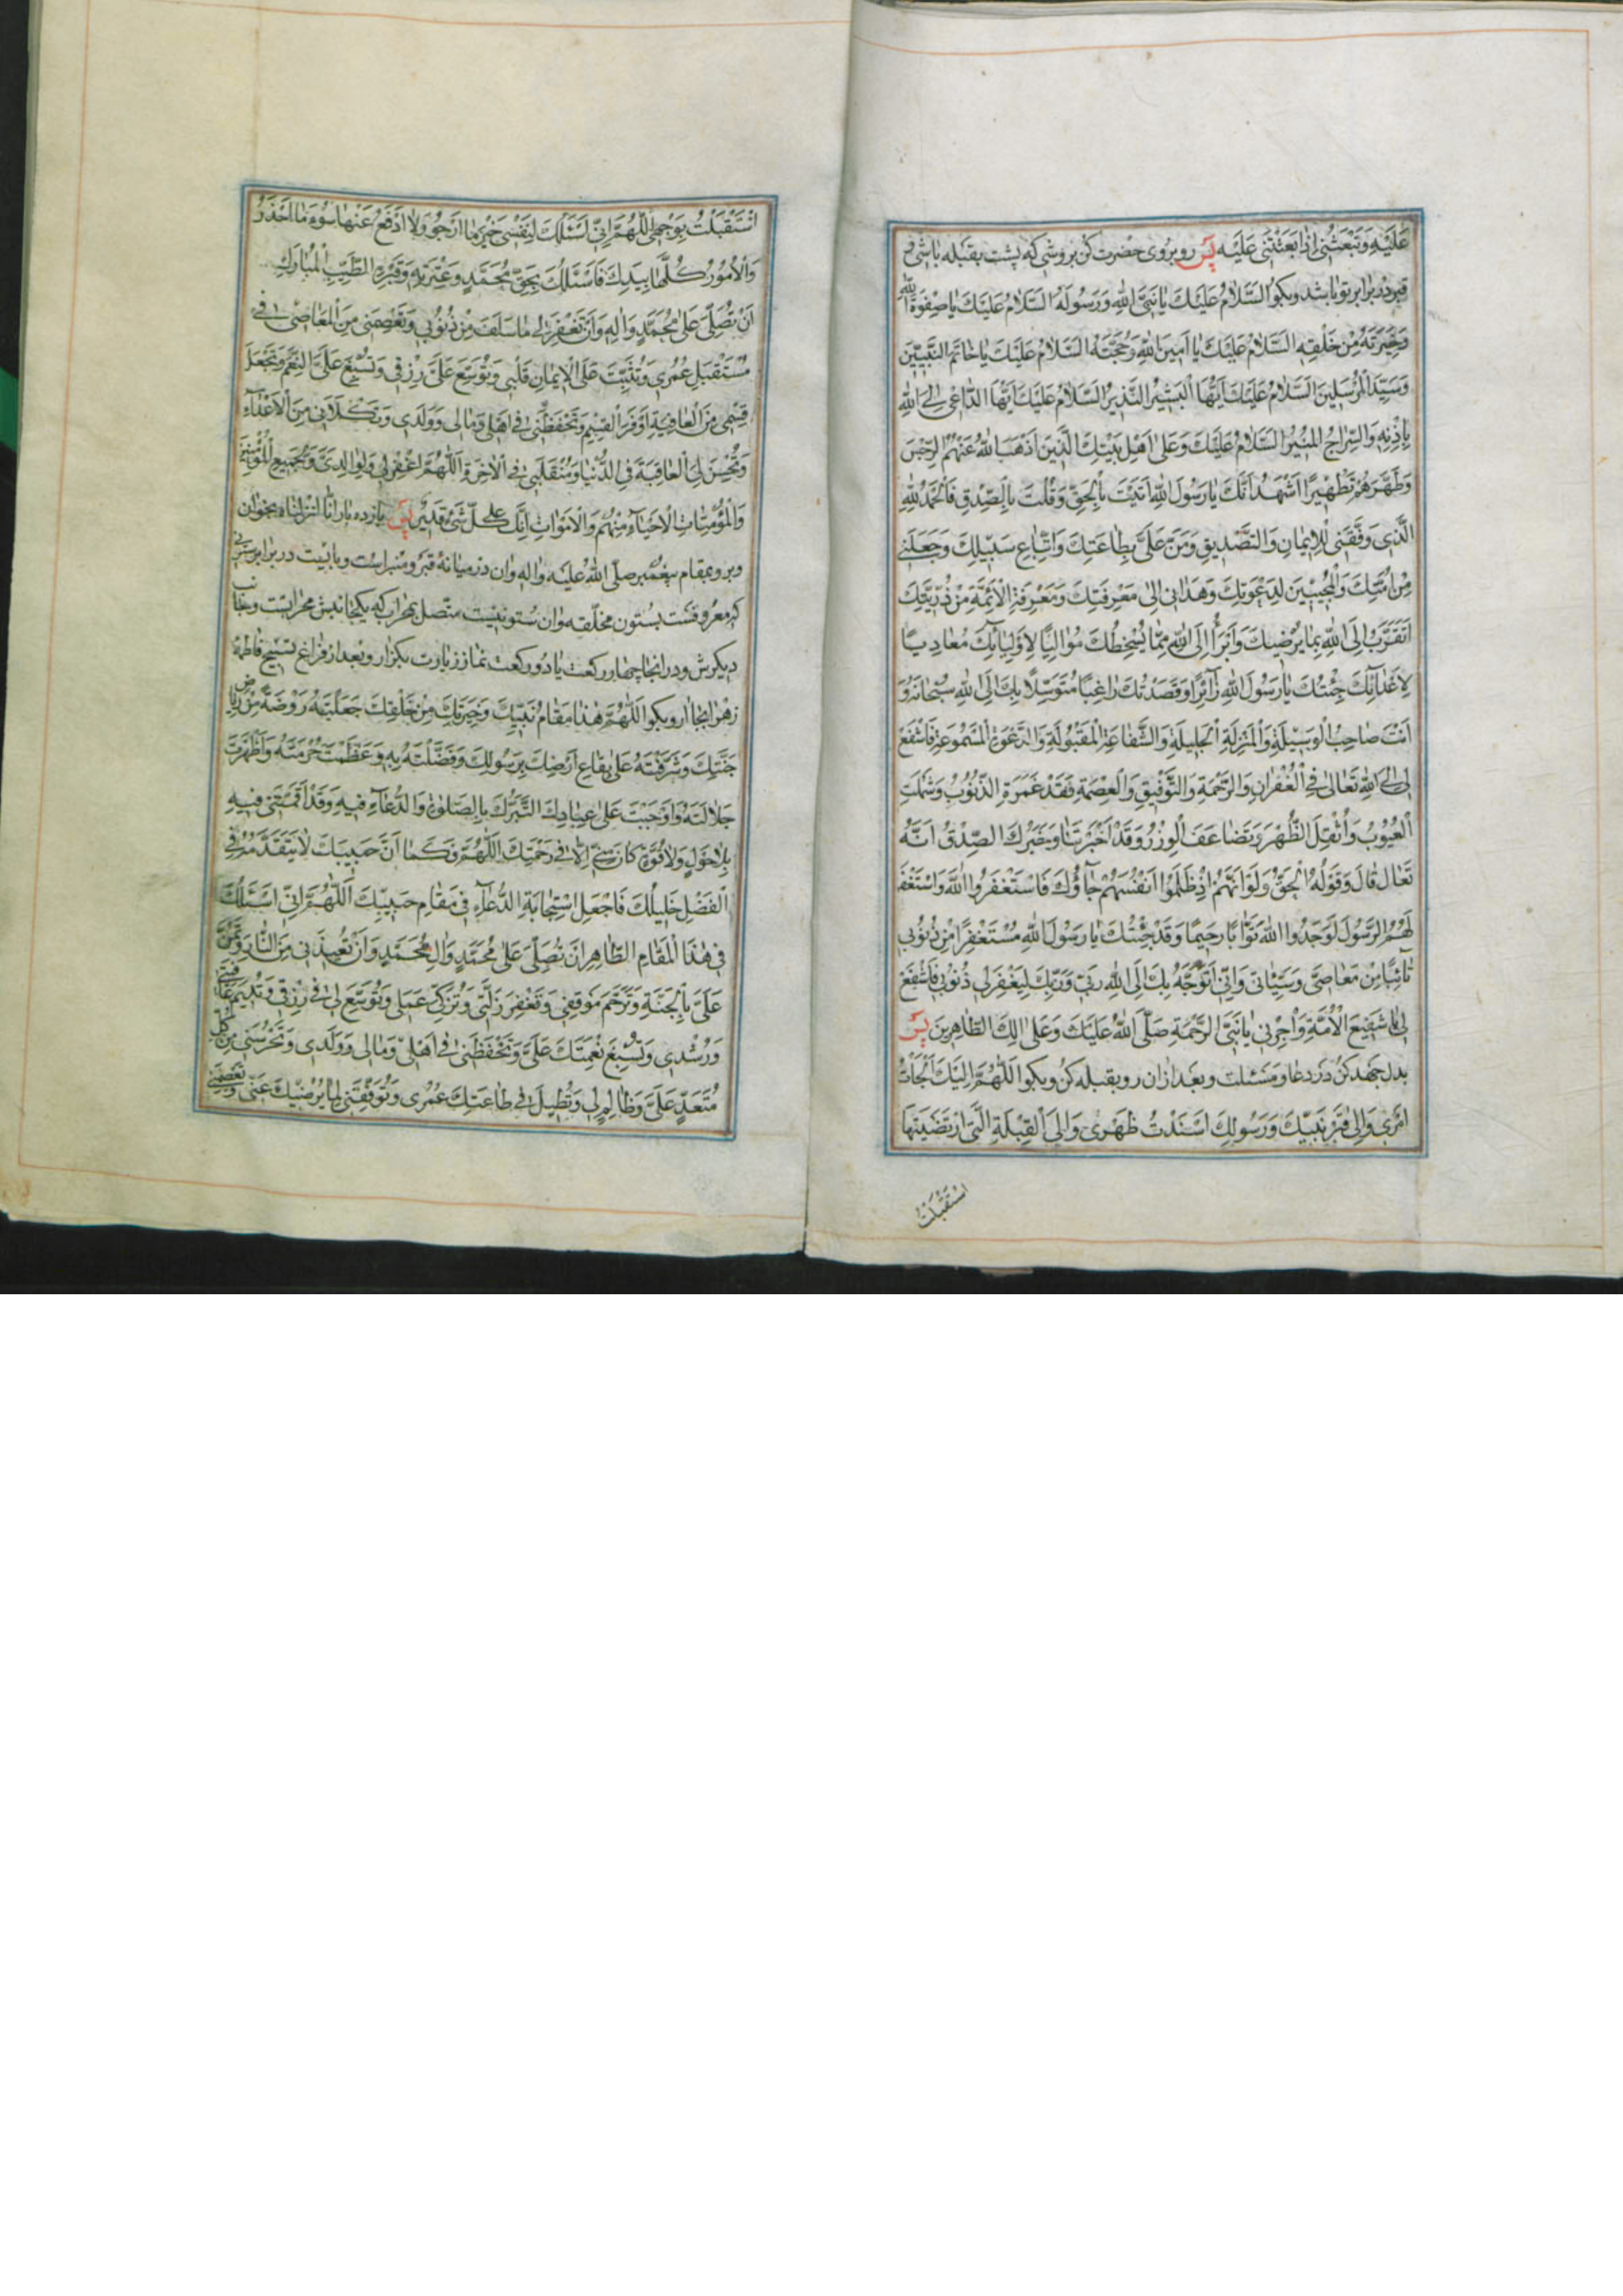 عَلَيْهِ وَتَبْعَثُنِي اِذٰا بَعَثْتَنِي عَلَيْه پس رو بروى حضرت كن بروشى كه پشت بقبله باشى و
قبر در برابر تو باشد و بكو اَلسَّلاٰمُ عَلَيْكَ يٰا نَبِيَّ اللهِ وَرَسُولَهُ اَلسَّلاٰمُ عَلَيْكَ يٰا صِفْوَةَ اللهِ
وَخِيَرَتَهُ مِنْ خَلْقِهِ اَلسَّلاٰمُ عَلَيْكَ يٰا اَمِينَ اللهِ وَحُجَّتَهُ اَلسَّلاٰمُ عَلَيْكَ يٰا خٰاتَمَ النَّبِيّيٖنَ
وَسَيِّدَ الْمُرْسَلِينَ اَلسَّلاٰمُ عَلَيْكَ اَيُّهَا الْبَشِيْرُ النَّذِيرُ اَلسَّلاٰمُ عَلَيْكَ اَيُّهَا الدّٰاعِي اِلَى اللهِ
بِاِذْنِهِ وَالسِّرٰاجُ الْمُنِيْرُ اَلسَّلاٰمُ عَلَيْكَ وَعَلىٰ اَهْلِ بَيْتِكَ الَّذِينَ اَذْهَبَ اللهُ عَنْهُمُ الرِّجْسَ
وَطَهَّرَهُمْ تَطْهِيرًا اَشْهَدُ اَنَّكَ يٰا رَسُولَ اللهِ اَتَيْتَ بِالْحَقِّ وَقُلْتَ بِالصِّدْقِ فَالْحَمْدُ لِلّٰهِ
الَّذِي وَفَّقَنِي لِلْاِيمٰانِ وَالتَّصْدِيقِ وَمَنَّ عَلَيَّ بِطٰاعَتِكَ وَاتِّبٰاعِ سَبِيْلِكَ وَجَعَلَنِي
مِنْ اُمَّتِكَ وَالْمُجِيْبِيْنَ لِدَعْوَتِكَ وَهَدٰانِي اِلىٰ مَعْرِفَتِكَ وَمَعْرِفَةِ الْاَئِمَّةِ مِنْ ذُرِّيَّتِكَ
اَتَقَرَّبُ اِلَى اللهِ بِمٰا يُرْضِيكَ وَاَبْرَأُ اِلَى اللهِ مِمّٰا يُسْخِطُكَ مُوٰالِيًا لِاَوْلِيٰائِكَ مُعٰادِيًا
لِاَعْدٰائِكَ جِئْتُكَ يٰا رَسُولَ اللهِ زٰائِرًا وَقَصَدْتُكَ رٰاغِبًا مُتَوَسِّلًا بِكَ اِلَى اللهِ سُبْحٰانَهُ وَ
اَنْتَ صٰاحِبُ الْوَسِيْلَةِ وَالْمَنْزِلَةِ الْجَلِيلَةِ وَالشَّفٰاعَةِ الْمَقْبُولَةِ وَالدَّعْوَةِ الْمَسْمُوعَةِ فَاشْفَعْ
لِي اِلَى اللهِ تَعٰالىٰ فِي الْغُفْرٰانِ وَالرَّحْمَةِ وَالتَّوْفِيْقِ وَالْعِصْمَةِ فَقَدْ غَمَرَةِ الذُّنُوبُ وَشَمَلَتِ
الْعُيُوبُ وَاُثْقِلَ الظَّهْرُ وَتَضٰاعَفَ الْوِزْرُ وَقَدْ اَخْبَرْتَنٰا وَخَبَرُكَ الصِّدْقُ اَنَّهُ
تَعٰالىٰ قٰالَ وَقَوْلُهُ الْحَقُّ وَلَوْ اَنَّهُمْ اِذْ ظَلَمُوا اَنْفُسَهُمْ جٰاؤُكَ فَاسْتَغْفَرُوا اللهَ وَاسْتَغْفَرَ
لَهُمُ الرَّسُولُ لَوَجَدُوا اللهَ تَوّٰابًا رَحِيمًا وَقَدْ جِئْتُكَ يٰا رَسُولَ اللهِ مُسْتَغْفِرًا مِنْ ذُنُوبِي
تٰائِبًا مِنْ مَعٰاصِيَّ وَسَيِّئٰاتِي وَاِنِّي اَتَوَجَّهُ بِكَ اِلَى اللهِ رَبِّي وَرَبِّكَ لِيَغْفِرَ لِي ذُنُوبِي فَاشْفَعْ
لِي يٰا شَفِيْعَ الْاُمَّةِ وَاَجِرْنِي يٰا نَبِيَّ الرَّحْمَةِ صَلَّى اللهُ عَلَيْكَ وَعَلىٰ اٰلِكَ الطّٰاهِرِينَ پس
بدل جهد كن در دعا و مسئلت و بعد از ان رو بقبله كن و بكو اَللّٰهُمَّ اِلَيْكَ اَلْجَاْتُ
اَمْرِي وَاِلىٰ قَبْرِ نَبِيِّكَ وَرَسُولِكَ اَسْنَدْتُ ظَهْرِي وَاِلَى الْقِبْلَةِ الَّتِي ارْتَضَيْتَهٰا
اسْتَقْبَلْتُ
اسْتَقْبَلْتُ بِوَجْهِي اَللّٰهُمَّ اِنِّي اَسْئَلُكَ لِنَفْسِي خَيْرَ مٰا اَرْجُو وَلاٰ اَدْفَعُ عَنْهٰا سُوءَ مٰا اَحْذَرُ
وَالْاُمُورُ كُلُّهٰا بِيَدِكَ فَاَسْئَلُكَ بِحَقِّ مُحَمَّدٍ وَعِتْرَتِهِ وَقَبْرِهِ الطَّيِّبِ الْمُبٰارَكِ
اَنْ تُصَلِّيَ عَلىٰ مُحَمَّدٍ وَاٰلِهِ وَاَنْ تَغْفِرَ لِي مٰا سَلَفَ مِنْ ذُنُوبِي وَتَعْصِمَنِي مِنَ الْمَعٰاصِي فِي
مُسْتَقْبَلِ عُمُرِي وَتُثَبِّتَ عَلَى الْاِيمٰانِ قَلْبِي وَتُوَسِّعَ عَلَيَّ رِزْقِي وَتُسْبِغَ عَلَيَّ النِّعَمَ وَتَجْعَلَ
قِسْمِي مِنَ الْعٰافِيَةِ اَوْفَرَ الْقِسْمِ وَتَحْفَظَنِي فِي اَهْلِي وَمٰالِي وَوَلَدِي وَتَكْلَاَنِي مِنَ الْاَعْدٰاءِ
وَتُحْسِنَ لِيَ الْعٰاقِبَةَ فِي الدُّنْيٰا وَمُنْقَلَبِي فِي الْاٰخِرَةِ اَللّٰهُمَّ اغْفِرْ لِي وَلِوٰالِدَيَّ وَلِجَمِيعِ الْمُؤْمِنِينَ
وَالْمُؤْمِنٰاتِ الْاَحْيٰاءِ مِنْهُمْ وَالْاَمْوٰاتِ اِنَّكَ عَلىٰ كُلِّ شَيْءٍ قَدِيرٌ پس يازده بار انّا انزلناه بخوان
و برو بمقام پيغمبر صلّى الله عليه واله وان در ميانهٔ قبر و منبر است و بايست در برابر ستونى
كه معروفست بستون مخلّقه وان ستونيست متّصل بمحراب كه يكجانبش محرابست وجانب
ديكرش و در انجا چهار ركعت يا دو ركعت نماز زيارت بكزار و بعد از فراغ تسبيح فاطمهٔ
زهرا بجا ار و بكو اَللّٰهُمَّ هٰذٰا مَقٰامُ نَبِيِّكَ وَخِيَرَتِكَ مِنْ خَلْقِكَ جَعَلْتَهُ رَوْضَةً مِنْ رِيٰاضِ
جَنَّتِكَ وَشَرَّفْتَهُ عَلىٰ بِقٰاعِ اَرْضِكَ بِرَسُولِكَ وَفَضَّلْتَهُ بِهِ وَعَظَّمْتَ حُرْمَتَهُ وَاَظْهَرْتَ
جَلاٰلَتَهُ وَاَوْجَبْتَ عَلىٰ عِبٰادِكَ التَّبَرُّكَ بِالصَّلٰوةِ وَالدُّعٰاءِ فِيهِ وَقَدْ اَقَمْتَنِي فِيهِ
بِلاٰ حَوْلٍ وَلاٰ قُوَّةٍ كٰانَ مِنِّي اِلاّٰ فِي رَحْمَتِكَ اَللّٰهُمَّ وَكَمٰا اَنَّ حَبِيبَكَ لاٰ يَتَقَدَّمُهُ فِي
الْفَضْلِ خَلِيلُكَ فَاجْعَلِ اسْتِجٰابَةَ الدُّعٰاءِ فِي مَقٰامِ حَبِيبِكَ اَللّٰهُمَّ اِنِّي اَسْئَلُكَ
فِي هٰذَا الْمَقٰامِ الطّٰاهِرِ اَنْ تُصَلِّيَ عَلىٰ مُحَمَّدٍ وَاٰلِ مُحَمَّدٍ وَاَنْ تُعِيذَنِي مِنَ النّٰارِ وَتَمُنَّ
عَلَيَّ بِالْجَنَّةِ وَتَرْحَمَ مَوْقِفِي وَتَغْفِرَ زَلَّتِي وَتُزَكِّيَ عَمَلِي وَتُوَسِّعَ لِي فِي رِزْقِي وَتُدِيمَ عٰافِيَتِي
وَرُشْدِي وَتُسْبِغَ نِعْمَتَكَ عَلَيَّ وَتَحْفَظَنِي فِي اَهْلِي وَمٰالِي وَوَلَدِي وَتَحْرُسَنِي مِنْ كُلِّ
مُتَعَدٍّ عَلَيَّ وَظٰالِمٍ لِي وَتُطِيلَ فِي طٰاعَتِكَ عُمُرِي وَتُوَفِّقَنِي لِمٰا يُرْضِيكَ عَنِّي وَتَعْصِمَنِي